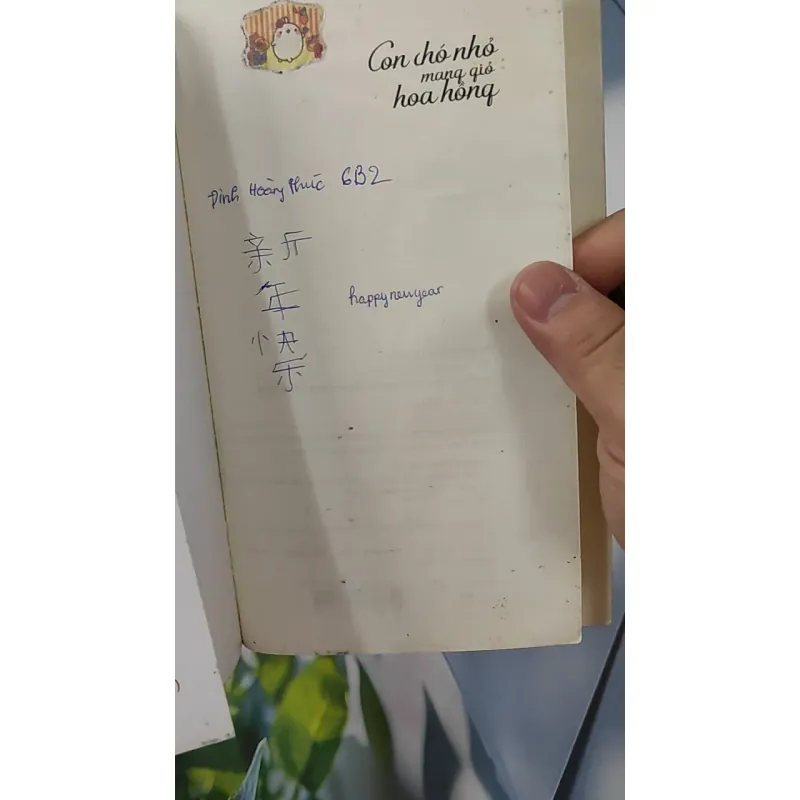 Con chó nhỏ
mang giỏ
hoa hồng
Đinh Hoàng Phúc 6B2
新
年
happynewyear
快
乐